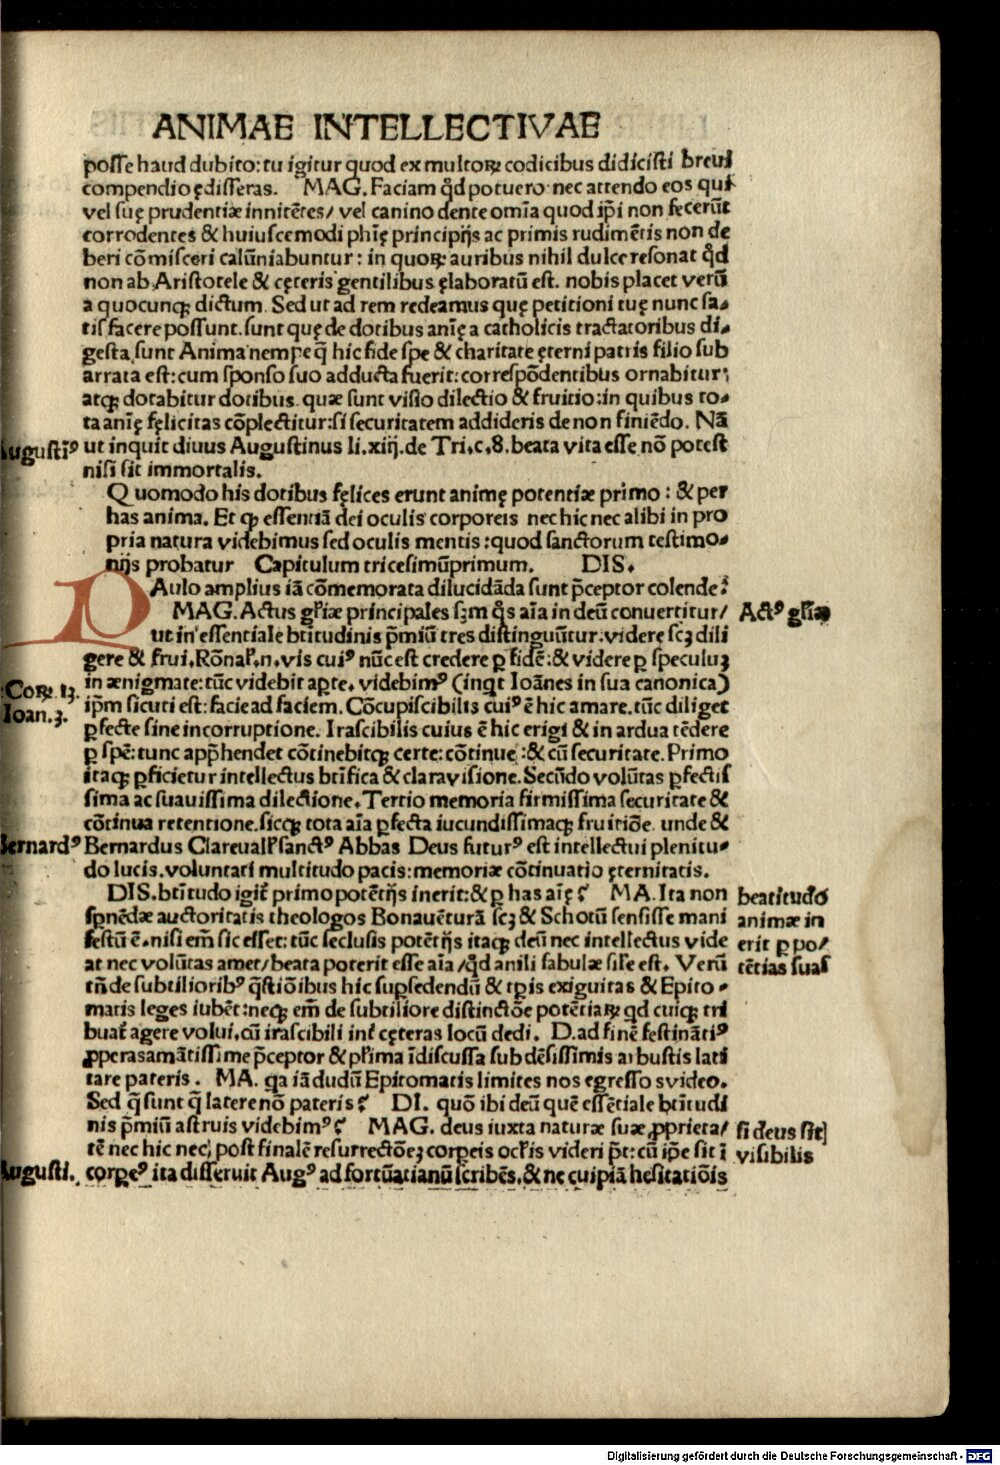 ANIMAE INTELLECTIVAE
posse haud dubito: tu igitur quod ex multoꝝ codicibus didicisti breui
compendio ędisseras. MAG. Faciam qd̄ potuero nec attendo eos qui
vel suę prudentiæ innitētes/ vel canino dente omīa quod ip̄i non fecerūt
corrodentes & huiuscemodi phīę principijs ac primis rudimētis non de
beri cōmisceri calūniabuntur: in quoꝝ auribus nihil dulce resonat qd̄
non ab Aristotele & cęteris gentilibus ęlaboratū est. nobis placet verū
a quocunqꝫ dictum. Sed ut ad rem redeamus quę petitioni tuę nunc sa-
tisfacere possunt. sunt quę de dotibus anīę a catholicis tractatoribus di-
gesta sunt Anima nempe q̄ hic fide spe & charitate ęterni patris filio sub
arrata est: cum sponso suo adducta fuerit: correspōdentibus ornabitur:
atqꝫ dotabitur dotibus. quæ sunt visio dilectio & fruitio: in quibus to-
ta anīę fęlicitas cōplectitur: si securitatem addideris de non finiēdo. Nā
Augustiꝰ ut inquit diuus Augustinus li. xiij. de Tri. c. 8. beata vita esse nō potest
nisi sit immortalis.
Quomodo his dotibus fęlices erunt animę potentiæ primo: & per
has anima. Et qꝫ essentiā dei oculis corporeis nec hic nec alibi in pro
pria natura videbimus sed oculis mentis: quod sanctorum testimo-
nijs probatur Capitulum tricesimūprimum. DIS.
PAulo amplius iā cōmemorata dilucidāda sunt p̄ceptor colende:
MAG. Actus gl̄iæ principales sꝫm q̄s aīa in deū conuertitur/ Actꝰ gl̄iæ
ut in essentiale btītudinis p̄miū tres distinguūtur: viderę scꝫ dili
gere & frui. Rōnal̄. n. vis cuiꝰ nūc est credere ꝑ fidē: & videre ꝑ speculuꝫ
in ænigmate: tūc videbit apte. videbimꝰ (inqt Ioānes in sua canonica)
Coꝝ. 13.
Ioan. 3. ip̄m sicuti est: facie ad faciem. Cōcupiscibilis cuiꝰ ē hic amare. tūc diliget
ꝑfecte sine incorruptione. Irascibilis cuius ē hic erigi & in ardua tēdere
ꝑ spē: tunc app̄hendet cōtinebitqꝫ certe: cōtinue: & cū securitate. Primo
itaqꝫ ꝑficietur intellectus btīfica & clara visione. Secūdo volūtas ꝑfectis
sima ac suauissima dilectione. Tertio memoria firmissima securitate &
cōtinua retentione. sicqꝫ tota aīa ꝑfecta iucundissimaqꝫ fruitiōe. unde &
Bernardꝰ Bernardus Clareuall̄ sanctꝰ Abbas Deus futurꝰ est intellectui plenitu-
do lucis. voluntati multitudo pacis: memoriæ cōtinuatio ęternitatis.
DIS. btītudo igit̄ primo potētijs inerit: & ꝑ has aīę? MA. Ita non beatitudo
spnēdæ auctoritatis theologos Bonauēturā scꝫ & Schotū sensisse mani animæ in
festū ē. nisi em̄ sic esset: tūc seclusis potētijs itaqꝫ deū nec intellectus vide erit ꝑ po/
at nec volūtas amet/ beata poterit esse aīa/ qd̄ anili fabulæ sil̄e est. Verū tētias suas
tn̄ de subtilioribꝰ q̄stiōibus hic suꝑsedendū & tꝑis exiguitas & Epito-
matis leges iubēt: neqꝫ em̄ de subtiliore distinctōe potētiaꝝ qd cuiqꝫ tri
buat̄ agere volui. cū irascibili int̄ cęteras locū dedi. D. ad finē festinātiꝰ
ꝓperas amātissime p̄ceptor & pl̄ima īdiscussa sub dēsissimis arbustis lati
tare pateris. MA. qa iā dudū Epitomatis limites nos egressos video.
Sed q̄ sunt q̄ latere nō pateris? DI. quō ibi deū quē essētiale btītudi
nis p̄miū astruis videbimꝰ? MAG. deus iuxta naturæ suæ ꝓprieta/ si deus sit
tē nec hic nec post finalē resurrectōeꝫ corꝑeis ocl̄is videri pt̄: cū ip̄e sit ī visibilis
Augusti. corꝑeꝰ ita disseruit Augꝰ ad fortūatianū scribēs. & ne cuipiā hesitatiōis